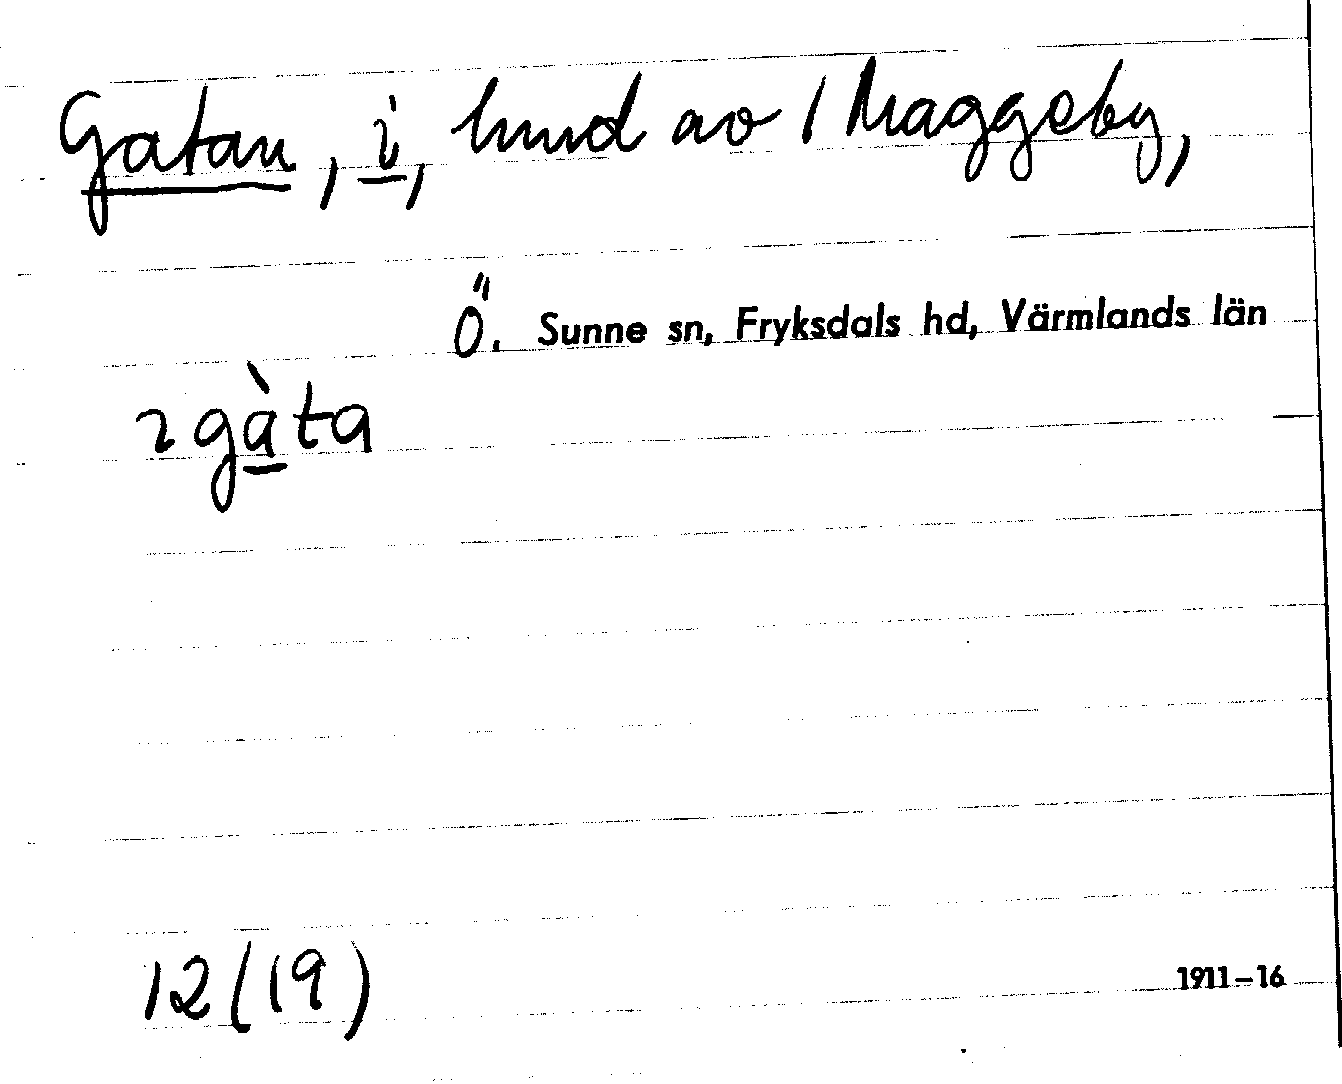 Gatan, i, hmd av 1 Maggeby,
Ö. Sunne sn, Fryksdals hd, Värmlands län
ɩ gàta
12(19)
1911–16